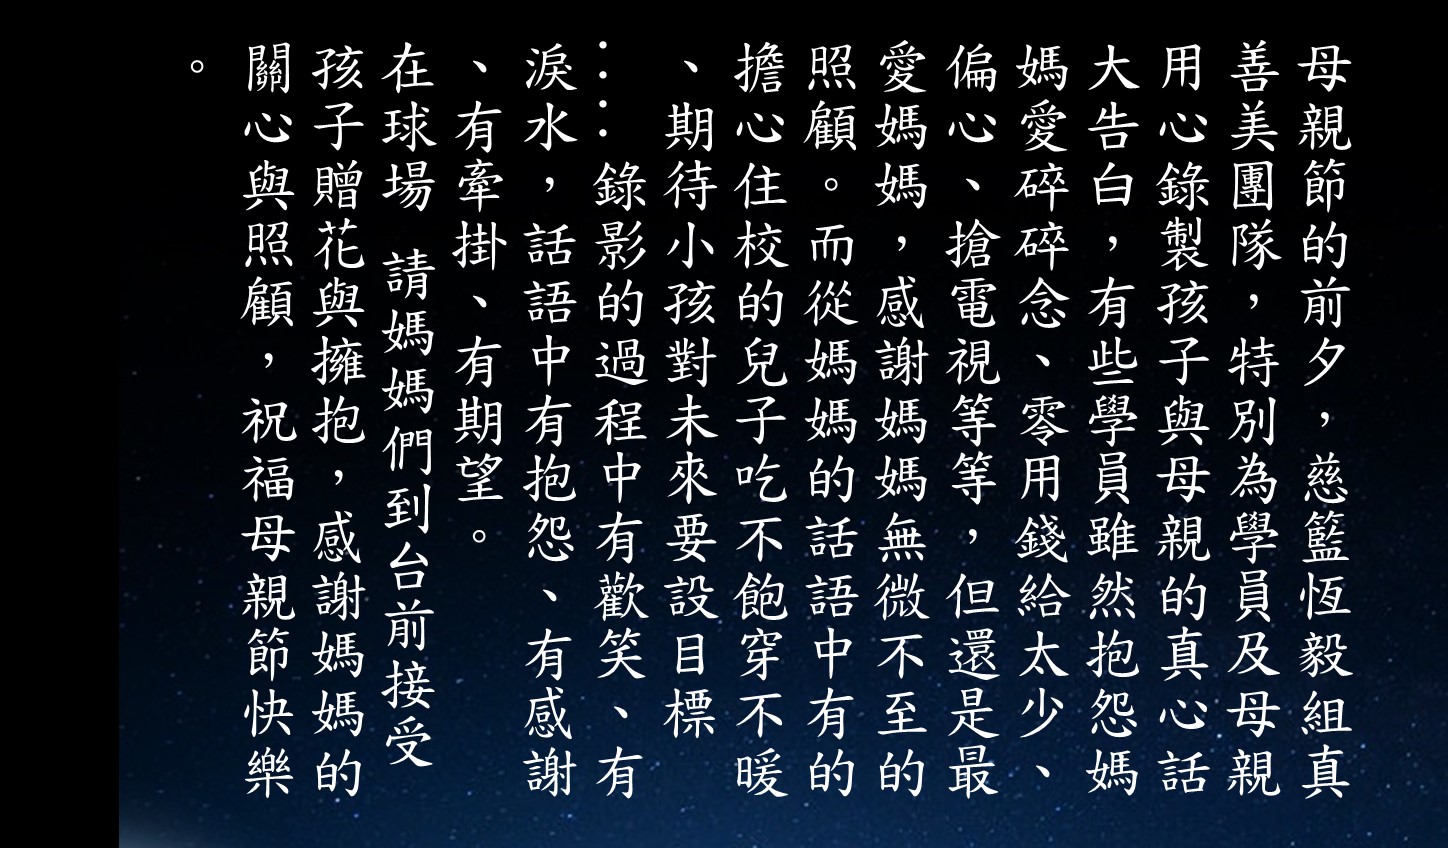 母親節的前夕，慈籃恆毅組真
善美團隊，特別為學員及母親
用心錄製孩子與母親的真心話
大告白，有些學員雖然抱怨媽
媽愛碎碎念、零用錢給太少、
偏心、搶電視等等，但還是最
愛媽媽，感謝媽媽無微不至的
照顧。而從媽媽的話語中有的
擔心住校的兒子吃不飽穿不暖
、期待小孩對未來要設目標
：：錄影的過程中有歡笑、有
淚水，話語中有抱怨、有感謝
、有牽掛、有期望。
在球場 請媽媽們到台前接受
孩子贈花與擁抱，感謝媽媽的
關心與照顧，祝福母親節快樂
。